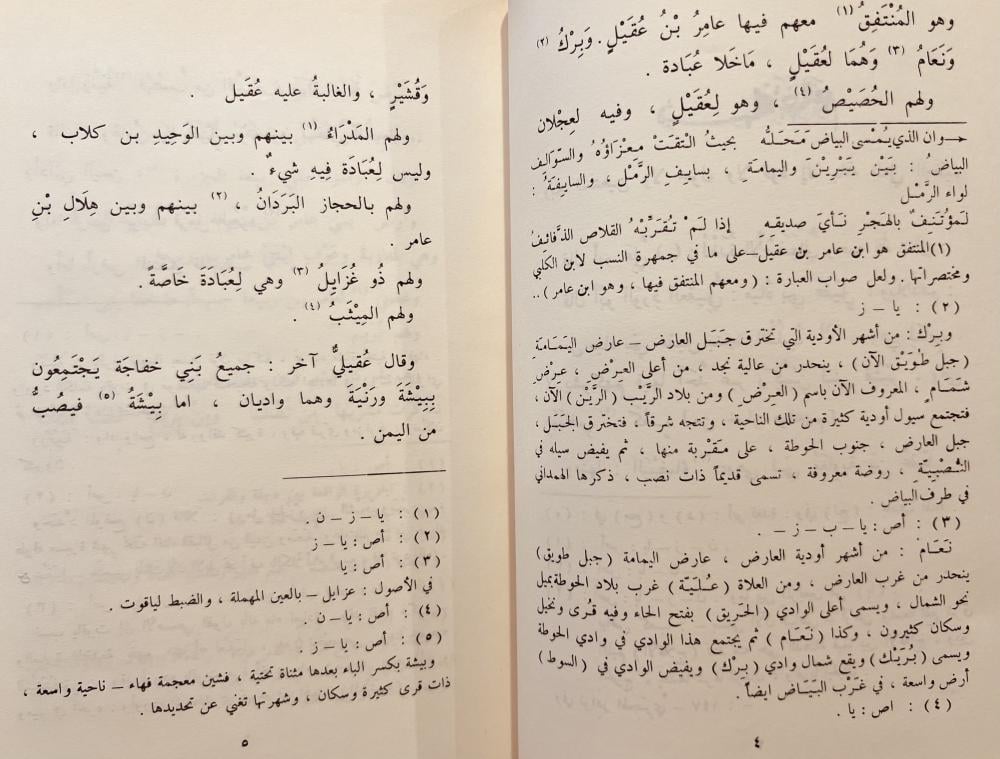 وهو المُنْتَفِقُ (١) معهم فيها عامِرُ بْنُ عُقَيْلٍ. وَبِرْكُ (٢)
وَنَعَامُ (٣) وَهُمَا لعُقَيْلٍ ، مَاخَلا عُبَادة .
ولهم الحُصَيْصُ (٤) ، وهو لِعُقَيْلٍ ، وفيه لعِجْلان
حـوان الذي يُمْسي البياض مَحَلُّهُ بحيثُ الْتقَتْ مِعْزَاؤُهُ والسّوَالِف
البياضُ : بَيْن يَبْرِيْنَ واليمامة ، بسايفِ الرَّمْل ، والسايفةُ :
لواء الرَّمْل
لَمؤْتَنِفٌ بالهَجْرِ نَأيَ صديقهِ إذا لَمْ تُقَرِّبْهُ القلاص الذَّفائِفُ
(١) المنتفق هو ابن عامر بن عقيل ـ على ما في جمهرة النسب لابن الكلبي
ومختصراتها . ولعل صواب العبارة : ( ومعهم المنتفق فيها ، وهو ابن عامر ) ..
(٢) : يا ـ ز
وبِرْك : من أشهر الأودية التي تخترق جَبَل العارض ـ عارض اليَمامة
( جبل طُوَيْق الآن ) ، ينحدر من عالية نجد ، من أعلى العِرْض ، عِرْض
شَمَامِ ، المعروف الآن باسم ( العرْض ) ومن بلاد الرَّيْب ( الرَّيْن ) الآن ،
فتجتمع سيول أودية كثيرة من تلك الناحية ، وتتجه شرقاً ، فتخترق الجَبَل ،
جبل العارض ، جنوب الحوطة ، على مَقْربة منها ، ثم يفيض سيله في
النُّصْبِيَّة ، روضة معروفة ، تسمى قديماً ذات نصب ، ذكرها الهمداني
في طرف البياض .
(٣) : أص : يا ـ ب ـ ز ـ .
نَعَام : من أشهر أودية العارض ، عارض اليمامة ( جبل طويق )
ينحدر من غرب العارض ، ومن العلاة ( عُلَيَّة ) غرب بلاد الحوطة بميل
نحو الشمال ، ويسمى أعلى الوادي ( الحَرِيق ) بفتح الحاء وفيه قُرى ونخيل
وسكان كثيرون ، وكذا ( نَعَام ) ثم يجتمع هذا الوادي في وادي الحوطة
ويسمى ( بُرَيْك ) ويقع شمال وادي ( بِرْك ) ويفيض الوادي في ( السوط )
أرض واسعة ، في غَرْب البَيَاض ايضاً .
(٤) : اص : يا .
٤
وَقُشَيْرٍ ، والغالبةُ عليه عُقَيل .
ولهم المَدْرَاءُ (١) بينهم وبين الوَحِيدِ بن كلاب ،
وليس لِعُبَادَة فِيهِ شيءٌ .
ولهم بالحجاز البَرَدَانُ ، (٢) بينهم وبين هِلَالِ بْنِ
عامر .
ولهم ذُو غُزَايلُ (٣) وهي لِعُبَادَةَ خَاصَّةً .
ولهم المِيْثَبُ (٤) .
وقال عُقيليٌّ آخر : جميعُ بَنِي خفاجَة يَجْتَمِعُون
بِبِيْشَةَ ورَنْيَةَ وهما واديان ، اما بِيْشَةُ (٥) فيصُبُّ
من اليمن .
(١) : يا ـ ز ـ ن .
(٢) : أص : يا ـ ز
(٣) : أص : يا
في الأصول : عزايل ـ بالعين المهملة ، والضبط لياقوت .
(٤) : أص : يا ـ ن .
(٥) : أص : يا ـ ز .
وبيشة بكسر الباء بعدها مثناة تحتية ، فشين معجمة فهاء ـ ناحية واسعة ،
ذات قرى كثيرة وسكان ، وشهرتها تغني عن تحديدها .
٥